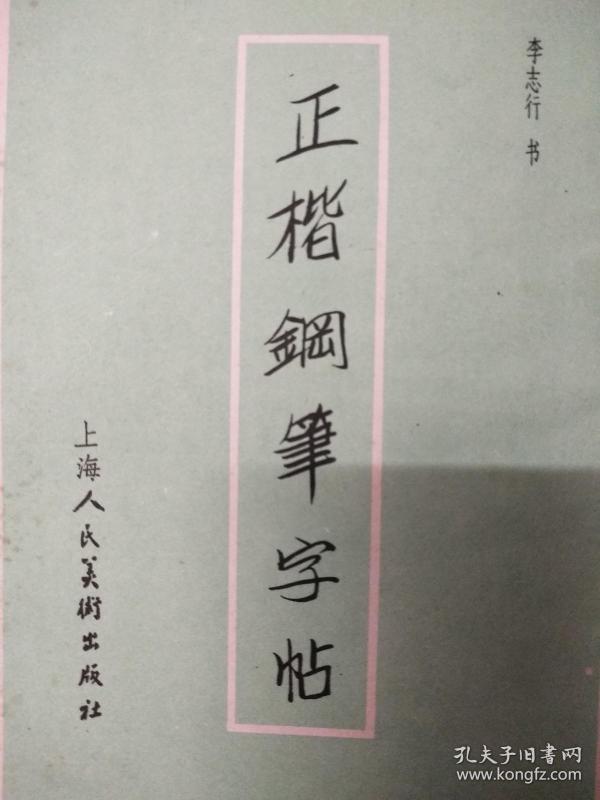 李志行 书
正楷鋼筆字帖
上海人民美術出版社
孔夫子旧书网
www.kongfz.com